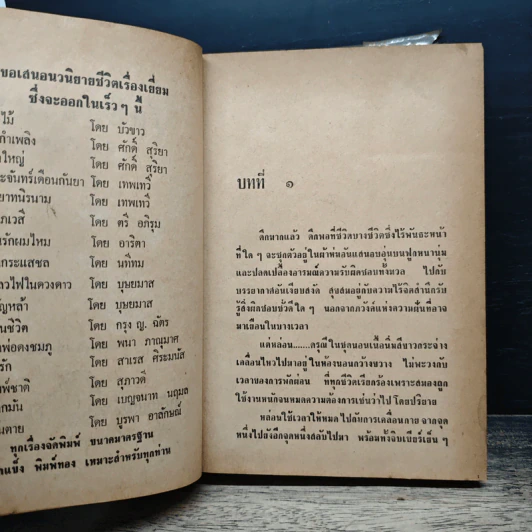 ขอเสนอนวนิยายชีวิตเรื่องเยี่ยม
ซึ่งจะออกในเร็ว ๆ นี้
ไม้ โดย บัวขาว
กำเพลิง โดย ศักดิ์ สุริยา
ใหญ่ โดย ศักดิ์ สุริยา
ะจันทร์เดือนกันยา โดย เทพเทวี
ยาทนิรนาม โดย เทพเทวี
ภเวสี โดย ตรี อภิรุม
นรักผมไหม โดย อาริตา
กกระแสชล โดย นทีทม
ลวไฟในดวงดาว โดย บุษยมาส
ญหล้า โดย บุษยมาส
นชีวิต โดย กรุง ญ. ฉัตร
พ่อดงชมภู โดย พนา ภาณุมาศ
รัก โดย สาเรส ศิระมนัส
พ์ชาติ โดย สุภาวดี
กมัน โดย เบญจนาท นฤมล
นตาย โดย บูรพา อาลักษณ์
ทุกเรื่องจัดพิมพ์ ขนาดมาตรฐาน
กแข็ง พิมพ์ทอง เหมาะสำหรับทุกท่าน
บทที่ ๑
ดึกมากแล้ว ดึกพอที่ชีวิตบางชีวิตซึ่งไร้พันธะหน้า
ที่ใด ๆ จะซุกตัวอยู่ในผ้าห่มอันแสนอบอุ่นบนฟูกหนานุ่ม
และปลดเปลื้องอารมณ์ความรับผิดชอบทั้งมวล ไปกับ
บรรยากาศอันเงียบสงัด สุขสมอยู่กับความไร้จิตสำนึกรับ
รู้สิ่งผิดชอบชั่วดีใด ๆ นอกจากภวังค์แห่งความฝันที่อาจ
มาเยือนในบางเวลา
แต่หล่อน......ดรุณีในชุดนอนเนื้อนิ่มสีขาวกระจ่าง
เคลื่อนไหวไปมาอยู่ในห้องนอนกว้างขวาง ไม่พะวงกับ
เวลาของการพักผ่อน ที่ทุกชีวิตเรียกร้องเพราะสมองถูก
ใช้งานหนักจนหมดความต้องการเช่นว่าไป โดยปริยาย
หล่อนใช้เวลาให้หมด ไปกับการเคลื่อนกาย จากจุด
หนึ่งไปยังอีกจุดหนึ่งกลับไปมา พร้อมทั้งจิบเบียร์เย็น ๆ